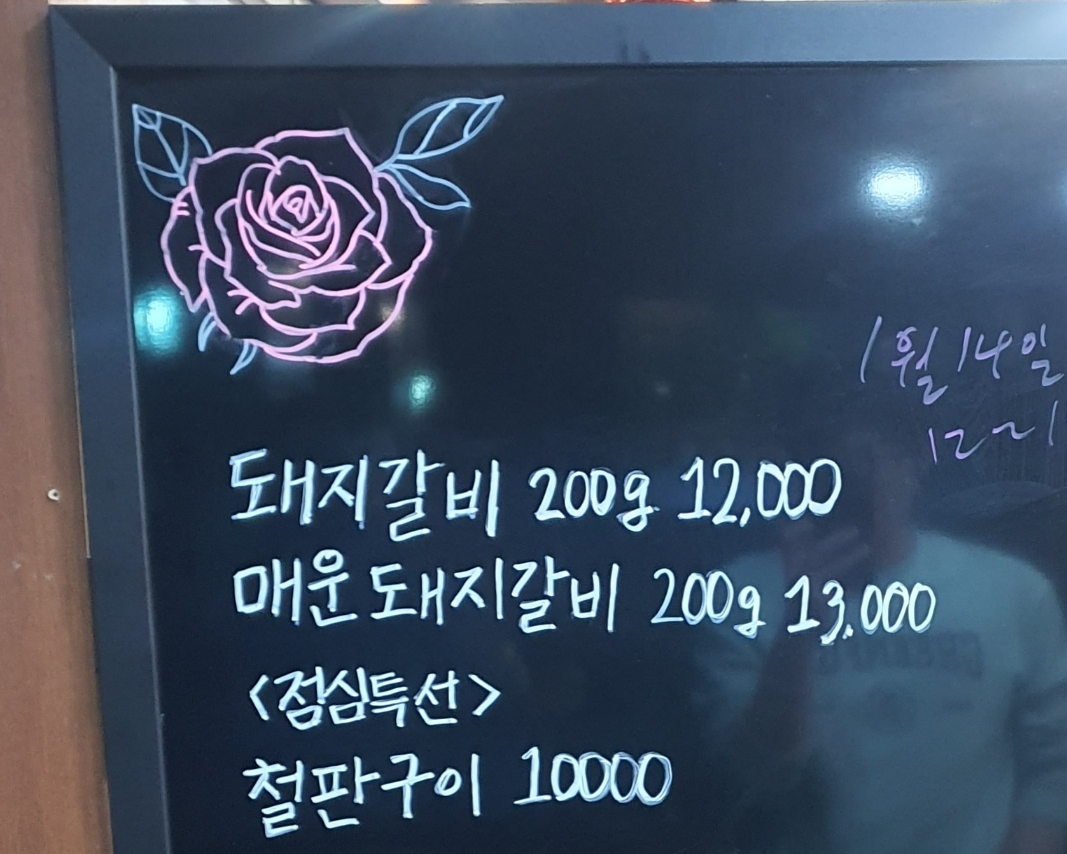 1월 14일
12~1
돼지갈비 200g 12,000
매운돼지갈비 200g 13,000
<점심특선>
철판구이 10000